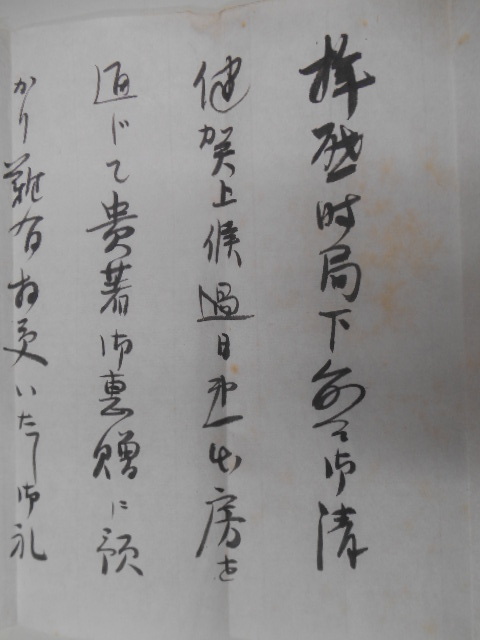 拝啓時局下愈々御清
健賀上候過日 房を
通じて貴著御恵贈に預
かり難有お受いたし御礼